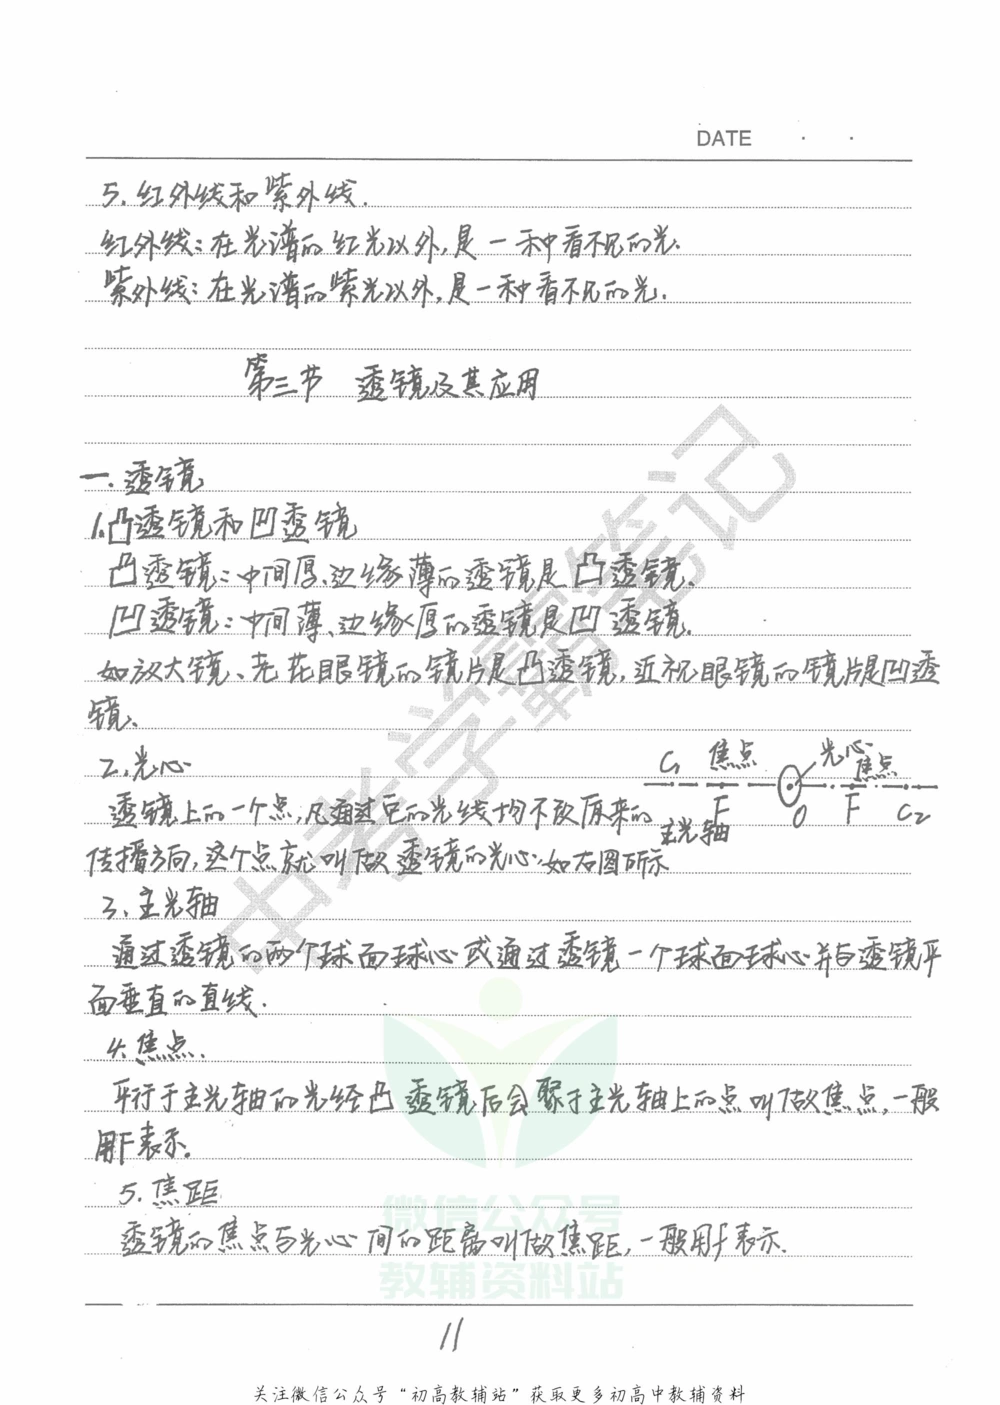 DATE
5.红外线和紫外线.
红外线:在光谱的红光以外,是一种看不见的光.
紫外线:在光谱的紫光以外,是一种看不见的光.
第三节 透镜及其应用
一.透镜
1.凸透镜和凹透镜
凸透镜:中间厚、边缘薄的透镜是凸透镜.
凹透镜:中间薄、边缘厚的透镜是凹透镜.
如放大镜、老花眼镜的镜片是凸透镜,近视眼镜的镜片是凹透
镜.
2.光心
C1 焦点 光心 焦点
F O F C2
主光轴
透镜上的一个点,凡通过它的光线均不改原来的
传播方向,这个点就叫做透镜的光心.如右图所示
3.主光轴
通过透镜的两个球面球心或通过透镜一个球面球心并与透镜平
面垂直的直线.
4.焦点.
平行于主光轴的光经凸透镜后会聚于主光轴上的点叫做焦点,一般
用F表示。
5.焦距
透镜的焦点与光心间的距离叫做焦距,一般用f表示.
11
中考学霸笔记
微信公众号
教辅资料站
关注微信公众号“初高教辅站”获取更多初高中教辅资料